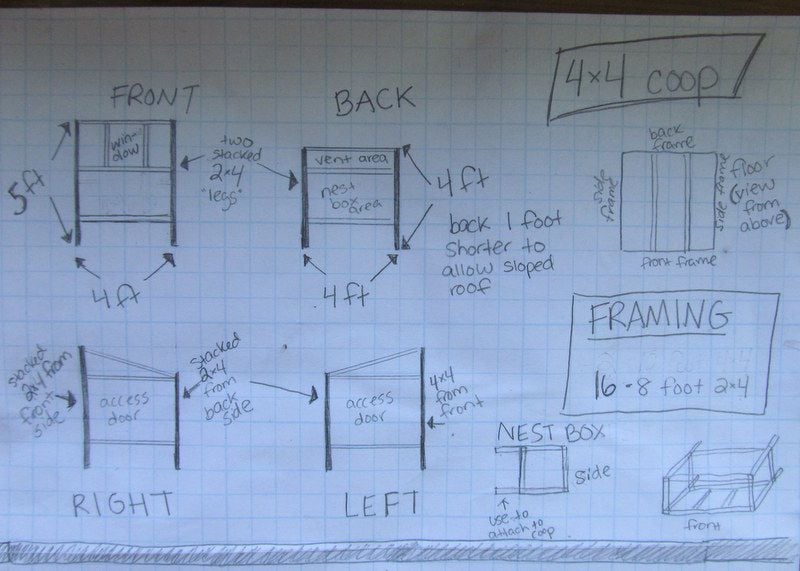 4x4 COOP
FRONT
BACK
5ft
win-
dow
two
stacked
2x4
"legs"
vent area
nest
box
area
4ft
4ft
4ft
back 1 foot
shorter to
allow sloped
roof
back
frame
side frame
side frame
floor
(view
from
above)
front frame
FRAMING
16 - 8 foot 2x4
stacked
2x4 from
front
side
access
door
stacked
2x4
from
back
side
access
door
4x4
from
front
RIGHT
LEFT
NEST BOX
side
use to
attach to
coop
front